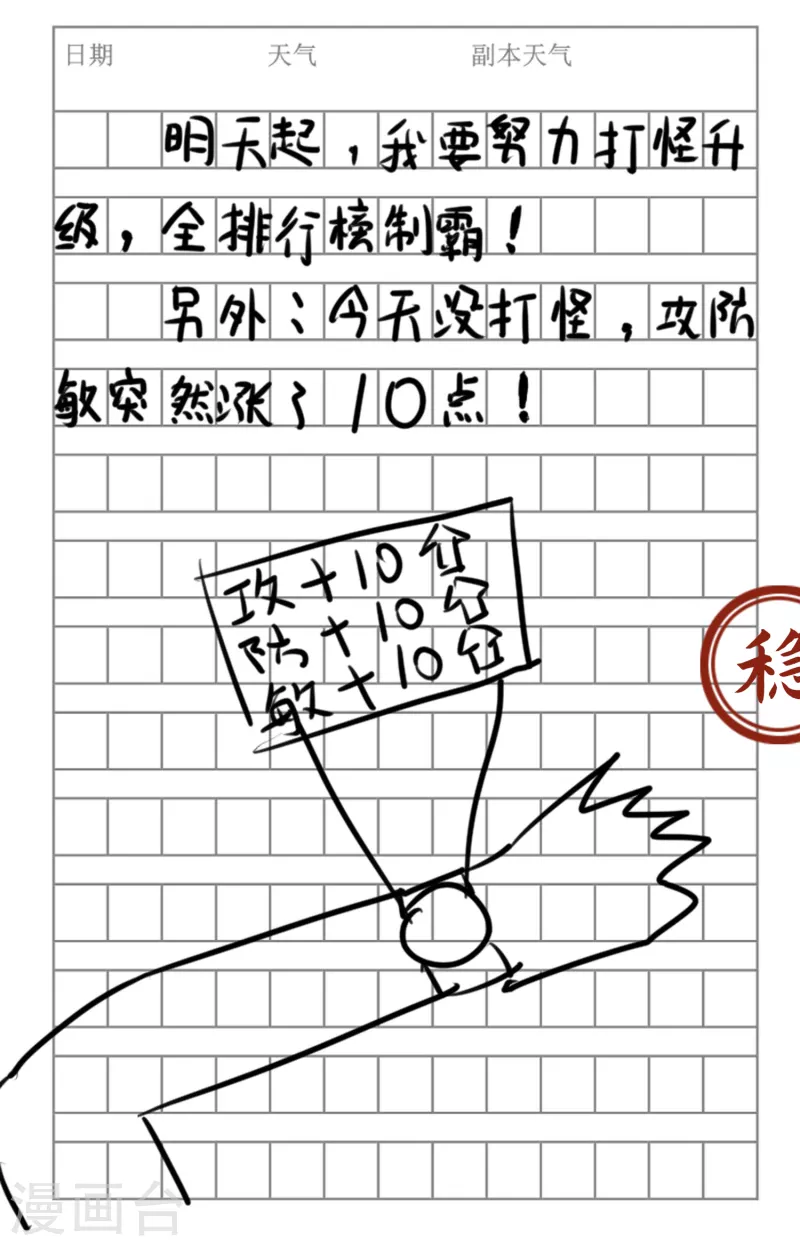 日期 天气 副本天气
明天起，我要努力打怪升
级，全排行榜制霸！
另外：今天没打怪，攻防
敏突然涨了10点！
攻+10分
防+10分
敏+10分
稳
漫画台